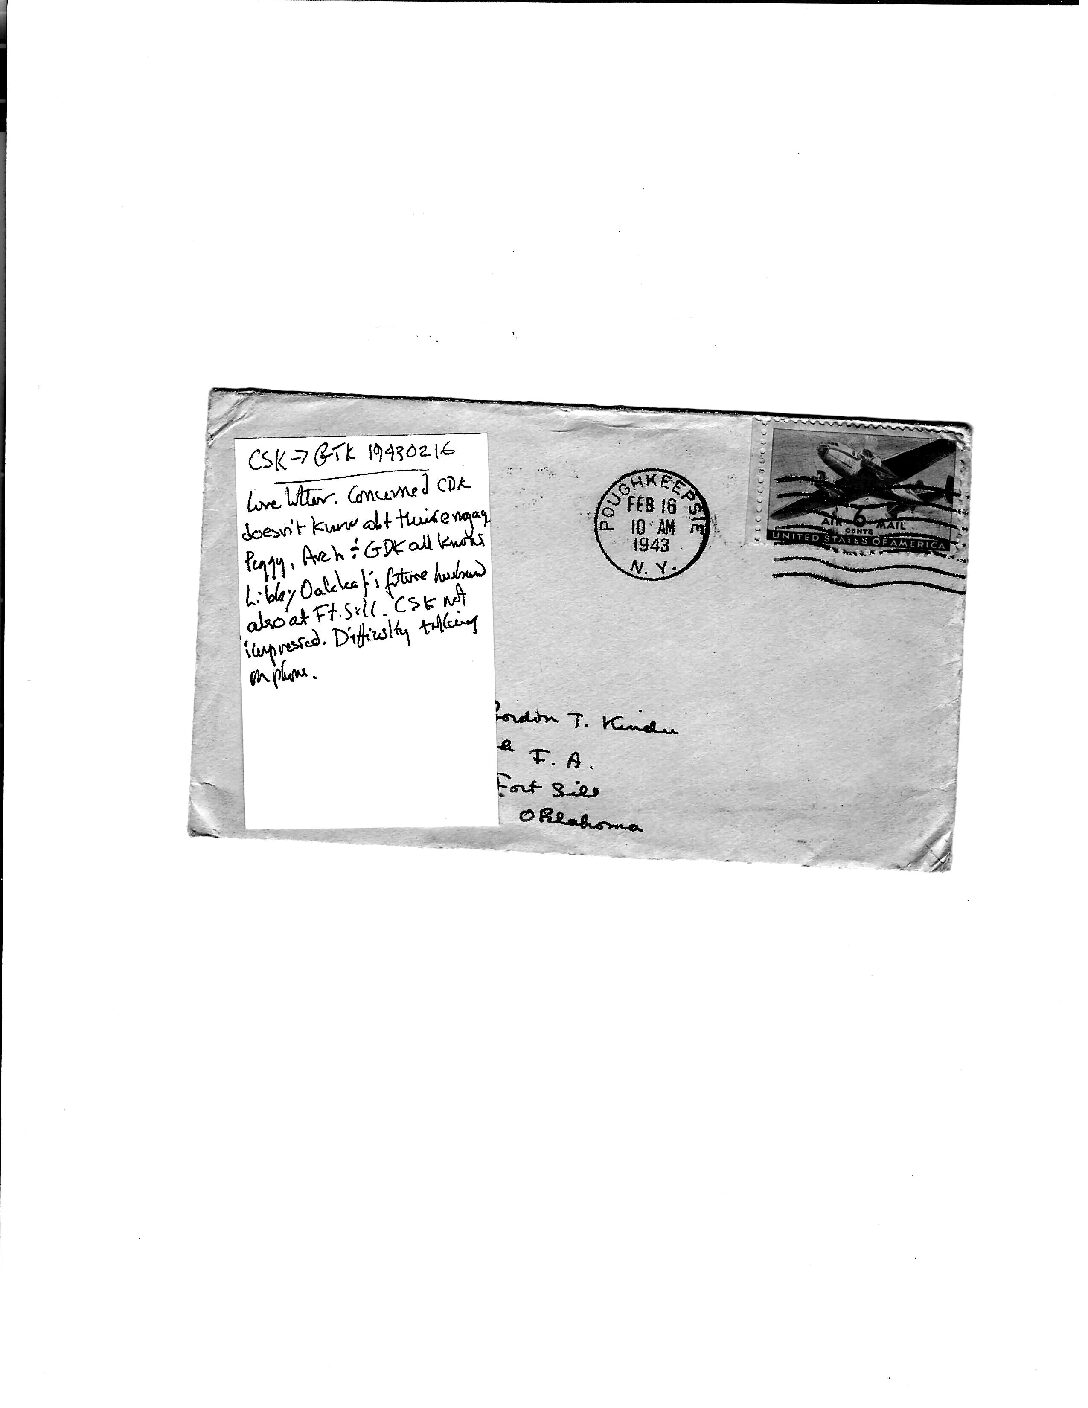 CSK => GTK 19430216
Love letter. Concerned CDK
doesn't know abt their engag
Peggy, Arch & GDK all know
Libby Oakleaf's future husband
also at Ft. Sill. CSK not
impressed. Difficulty talking
on phone.
POUGHKEEPSIE
FEB 16
10 AM
1943
N. Y.
AIR 6 MAIL
CENTS
UNITED STATES OF AMERICA
Gordon T.
F. A.
Fort Sill
Oklahoma